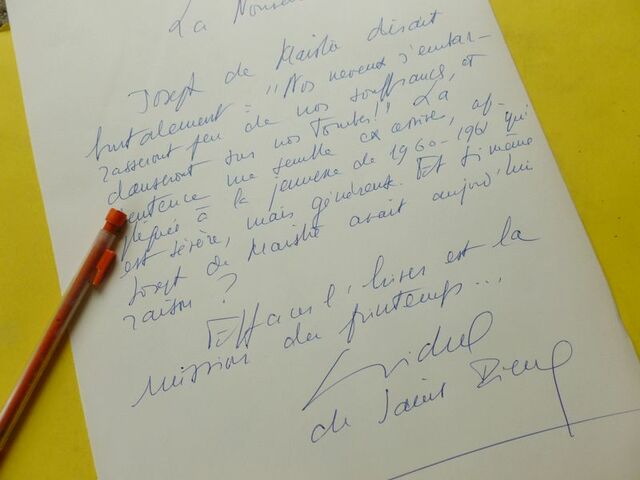 La Nouve
Joseph de Maistre disait
brutalement : "Nos neveux s'embar-
rasseront peu de nos souffrances, et
danseront sur nos tombes!" La
sentence me semble excessive, ap-
pliquée à la jeunesse de 1960-1961 qui
est sévère, mais généreuse. Et si même
Joseph de Maistre avait aujourd'hui
raison ?
Effacer l'hiver est la
mission du printemps...
Michel
de Saint Pierre